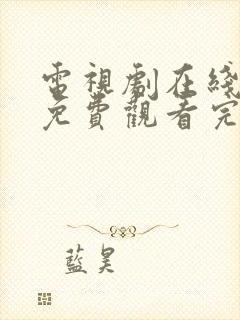 電視劇在綫
免費觀看完
藍昊